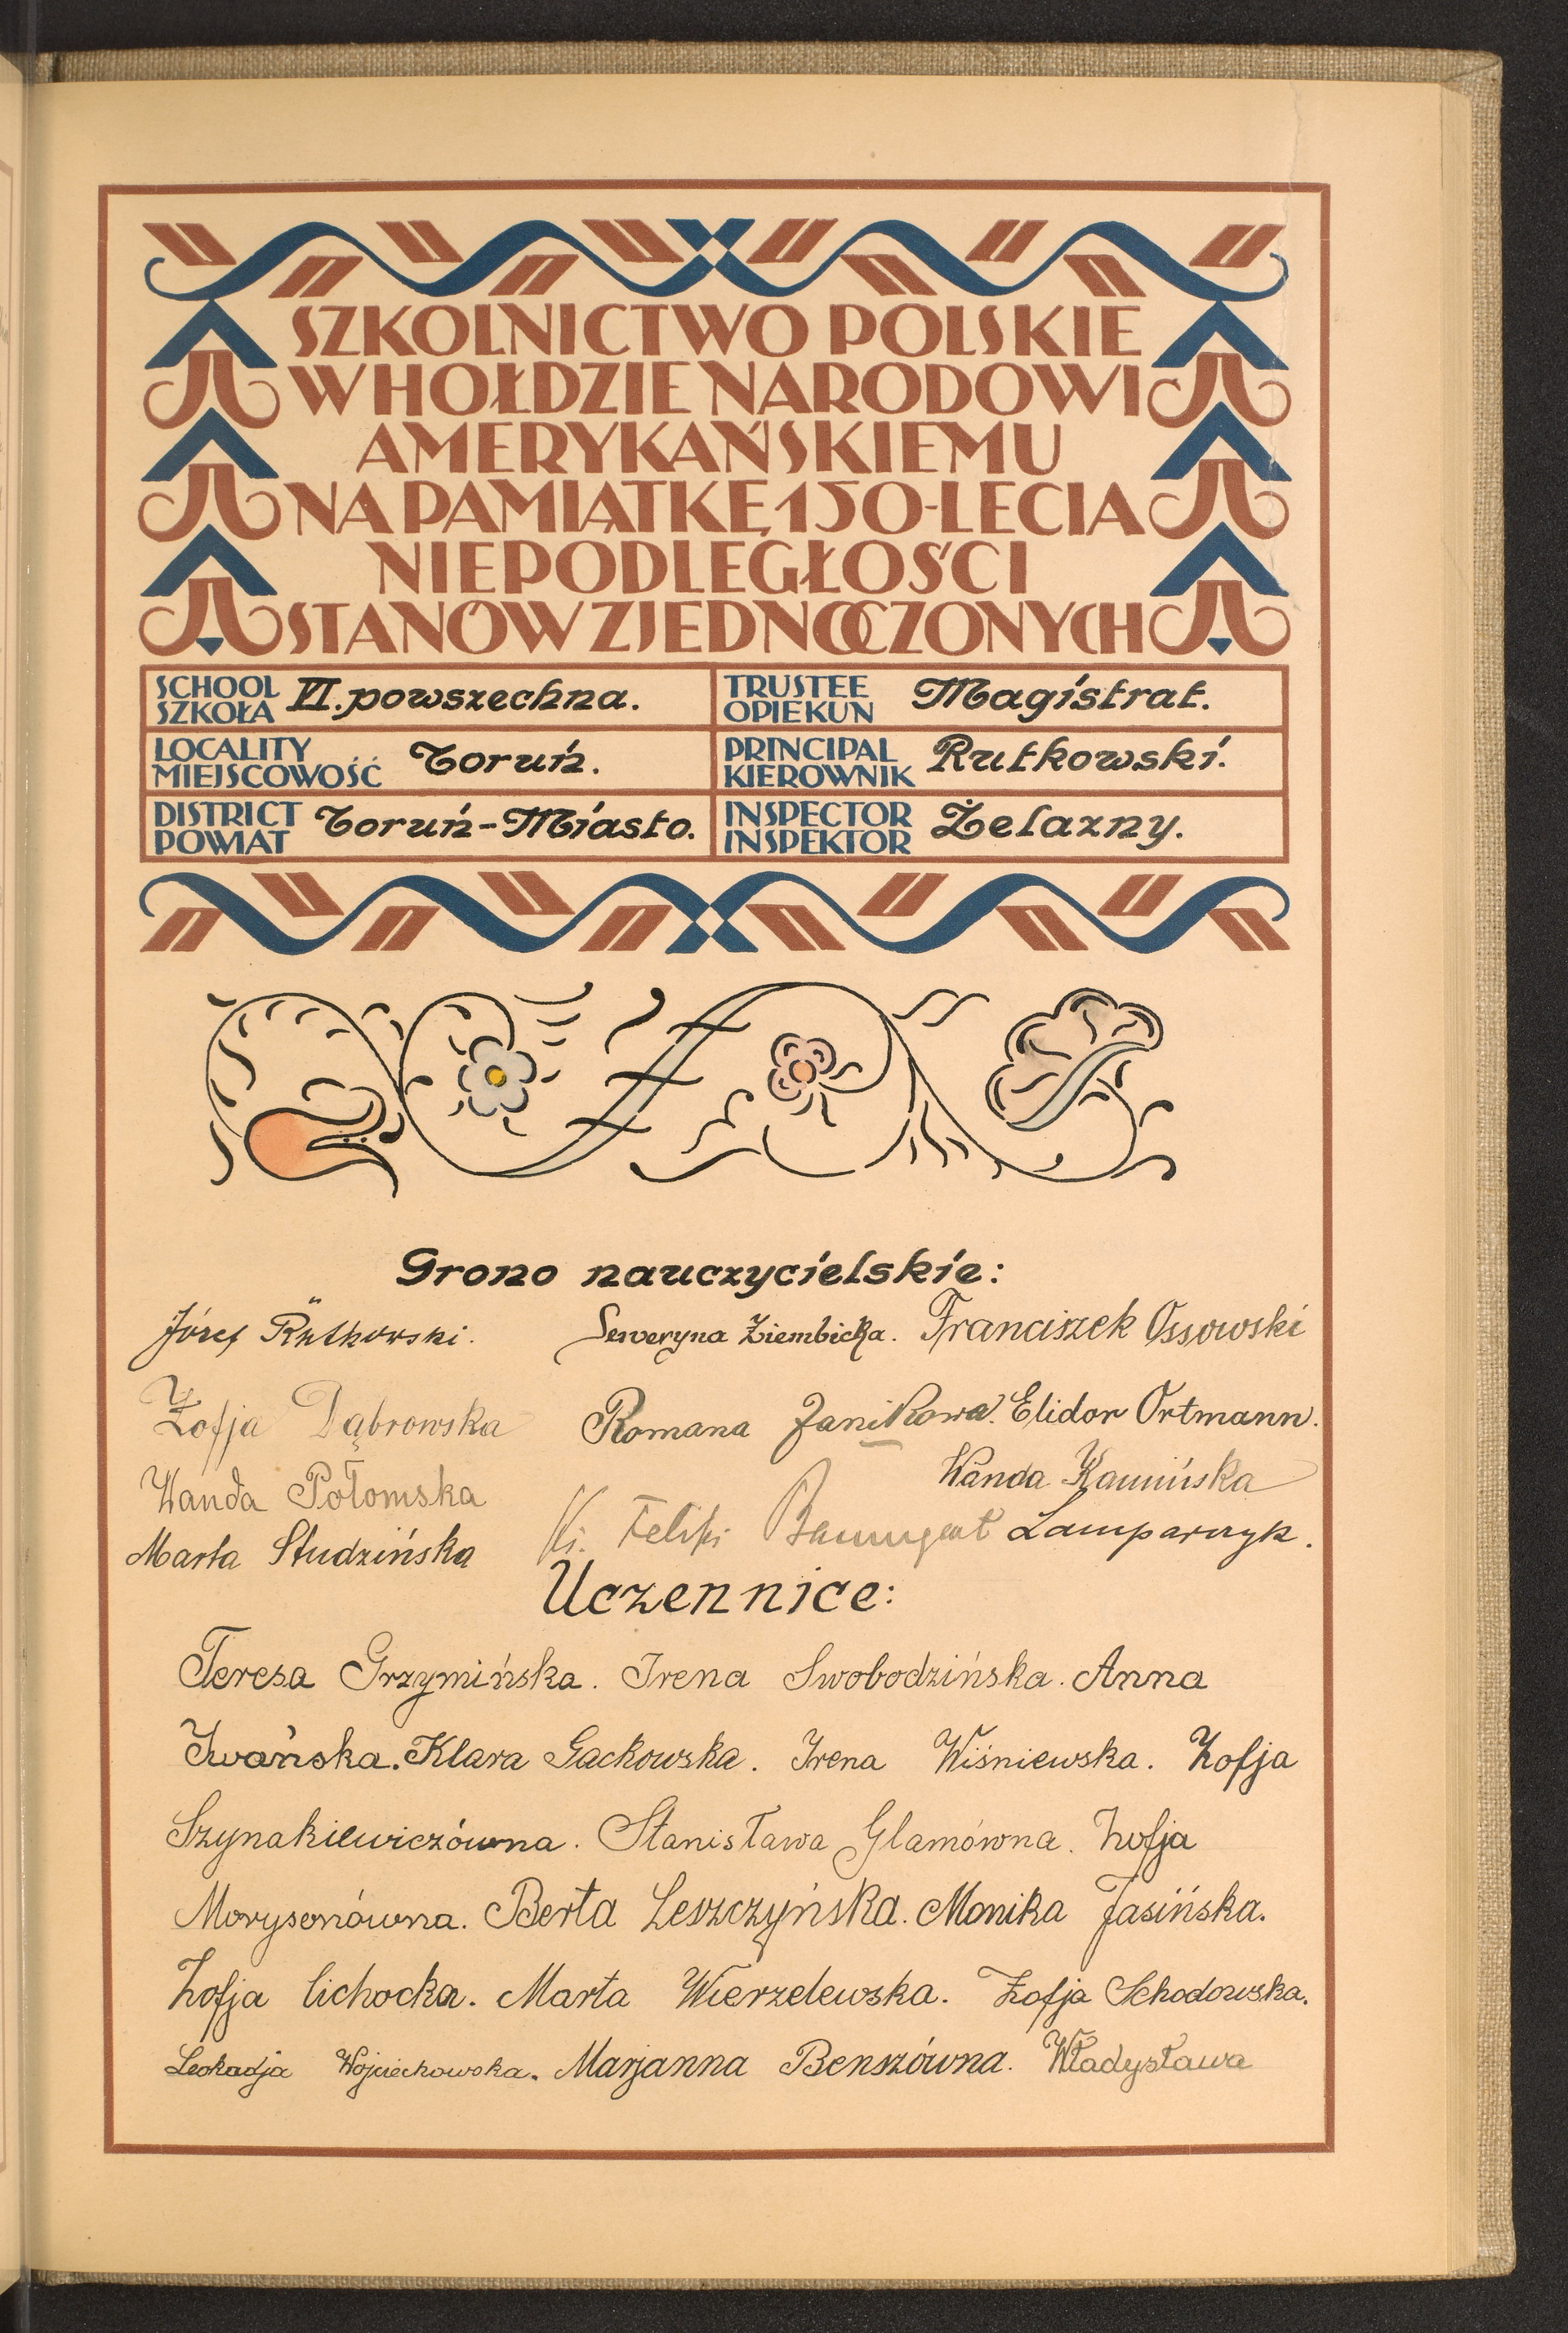 SZKOLNICTWO POLSKIE
W HOŁDZIE NARODOWI
AMERYKAŃSKIEMU
NA PAMIĄTKĘ 150-LECIA
NIEPODLEGŁOŚCI
STANÓW ZJEDNOCZONYCH
SCHOOL
SZKOŁA VI. powszechna.
TRUSTEE
OPIEKUN Magistrat.
LOCALITY
MIEJSCOWOŚĆ Toruń.
PRINCIPAL
KIEROWNIK Rutkowski.
DISTRICT
POWIAT Toruń-Miasto.
INSPECTOR
INSPEKTOR Żelazny.
Grono nauczycielskie:
Józef Rutkowski. Seweryna Ziembicka. Franciszek Ossowski
Zofja Dąbrowska Romana Janikowa. Elidor Ortmann.
Wanda Kamińska
Wanda Połomska
Feliks Lamparczyk.
Marta Studzińska
Uczennice:
Teresa Grzymińska. Irena Swobodzińska. Anna
Iwańska. Klara Gackowska. Irena Wiśniewska. Zofja
Szynakiewiczówna. Stanisława Glamówna. Zofja
Morysonówna. Berta Leszczyńska. Monika Jasińska.
Zofja Cichocka. Marta Wierzelewska. Zofja Schodowska.
Leokadja Wojciechowska. Marjanna Benszówna. Władysława